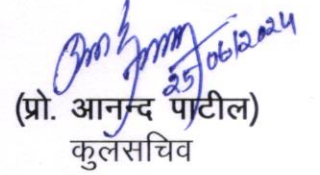 25/06/2024
(प्रो. आनन्द पाटील)
कुलसचिव